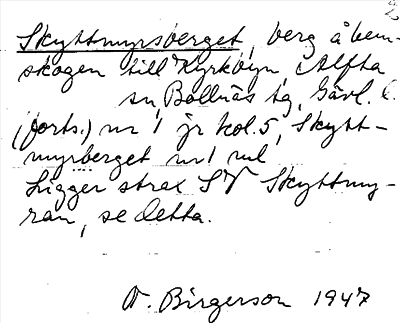 Skyttmyrsberget, berg å hem-
skogen till Kyrkbyn, Alfta
sn, Bollnäs tg, Gävl. l.
(forts.) nr 1 jr kol. 5, Skytt-
myrberget nr 1 ml
Ligger strax SV Skyttmy-
ran, se detta.
V. Birgerson 1947